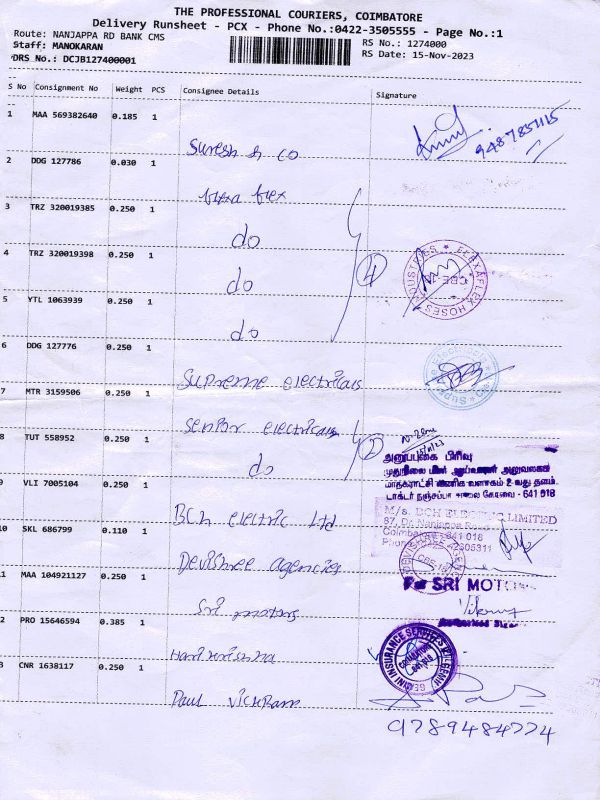 THE PROFESSIONAL COURIERS, COIMBATORE
Delivery Runsheet - PCX - Phone No.:0422-3505555 - Page No.:1
Route: NANJAPPA RD BANK CMS
RS No.: 1274000
Staff: MANOKARAN
RS Date: 15-Nov-2023
DRS No.: DCJB127400001
S No Consignment No Weight PCS Consignee Details Signature
1 MAA 569382640 0.185 1
Suresh & CO
9487857115
2 DDG 127786 0.030 1
flexa flex
3 TRZ 320019385 0.250 1
do
4 TRZ 320019398 0.250 1
do
4
FLEXAFLEX HOSES INDUSTRIES
CBE-18
5 YTL 1063939 0.250 1
do
6 DDG 127776 0.250 1
Supreme electricals
7 MTR 3159506 0.250 1
senior electricals
8 TUT 558952 0.250 1
do
2
அனுப்புகை பிரிவு
முதுநிலை மின் ஆய்வாளர் அலுவலகம்
மாநகராட்சி வணிக வளாகம் 2-வது தளம்.
டாக்டர் நஞ்சப்பா சாலை கோவை - 641 018
9 VLI 7005104 0.250 1
BCH electric Ltd
M/s. BCH ELECTRIC LIMITED
87, Dr. Nanjappa Road
Coimbatore - 641 018
10 SKL 686799 0.110 1
Devishree agencies
CBE-18
11 MAA 104921127 0.250 1
Sri motors
For SRI MOTORS
2 PRO 15646594 0.385 1
Harikrishna
GEMINI INSURANCE SERVICES
COIMBATORE
641 018
3 CNR 1638117 0.250 1
Paul Vickram
9789484774